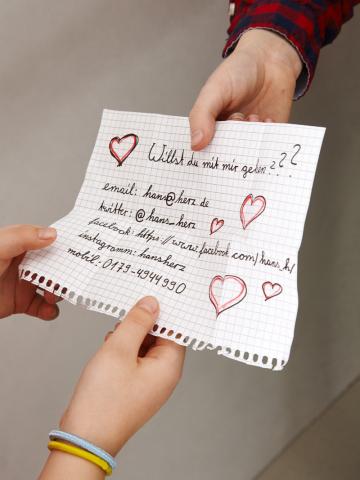 Willst du mit mir gehen???
email: hans@herz.de
twitter: @hans_herz
facebook: https://www.facebook.com/hans_h/
instagramm: hansherz
mobil: 0179-4944990